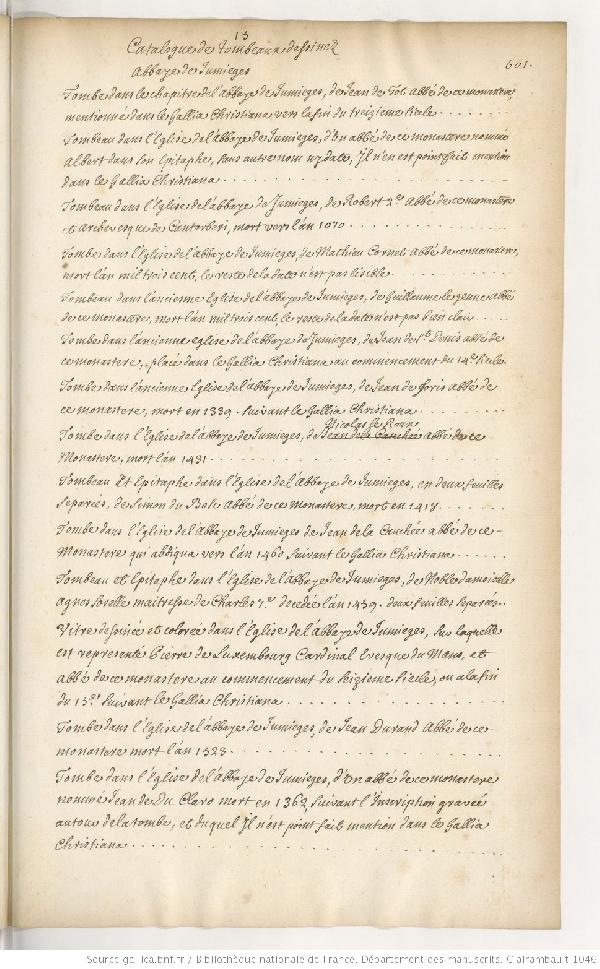 13
Catalogue de Tombeaux dessinez
601.
Abbaye de Jumieges
Tombe dans le chapitre de l'abbaye de Jumieges, de Jean de Tot abbé de ce monastere,
mentionné dans le Gallia Christiana vers la fin du treizieme siecle
Tombeau dans l'Eglise de l'abbaye de Jumieges, d'un abbé de ce monastere nommé
Albert dans son Epitaphe, sans autre nom ny date, Il n'en est point fait mention
dans le Gallia Christiana
Tombeau dans l'Eglise de l'abbaye de Jumieges, de Robert 2e Abbé de ce monastere
et Archevesque de Cantorberi, mort vers l'an 1070
Tombe dans l'Eglise de l'abbaye de Jumieges, de Mathieu Cornet Abbé de ce monastere,
mort l'an mil trois cent, le reste de la date n'est pas lisible
Tombeau dans l'ancienne Eglise de l'abbaye de Jumieges, de Guillaume le jeune Abbé
de ce monastere, mort l'an mil trois cent, le reste de la date n'est pas bien clair
Tombe dans l'ancienne eglise de l'abbaye de Jumieges, de Jean de St Denis abbé de
ce monastere, placé dans le Gallia Christiana au commencement du 14e siecle
Tombe dans l'ancienne Eglise de l'abbaye de Jumieges, de Jean de abbé de
ce monastere, mort en 1339. suivant le Gallia Christiana
Nicolas le Roux
Tombe dans l'Eglise de l'abbaye de Jumieges, de Jean de la Cauchée abbé de ce
Monastere, mort l'an 1431
Tombeau Et Epitaphe dans l'Eglise de l'Abbaye de Jumieges, en deux feuilles
separées, de Simon du Bosc Abbé de ce monastere, mort en 1418
Tombe dans l'Eglise de l'Abbaye de Jumieges de Jean de la Cauchée abbé de ce
Monastere qui abdiqua vers l'an 1460 suivant le Gallia Christiana
Tombeau et Epitaphe dans l'Eglise de l'abbaye de Jumieges, de Noble damoiselle
agnes Sorelle maitresse de Charles 7e decedée l'an 1439. deux feuilles separés
Vitre dessinée et colorée dans l'Eglise de l'abbaye de Jumieges, sur laquelle
est representé Pierre de Luxembourg Cardinal Evesque du Mans, et
abbé de ce monastere au commencement du seizieme siecle, ou a la fin
du 15e suivant le Gallia Christiana
Tombe dans l'Eglise de l'abbaye de Jumieges, de Jean Durand Abbé de ce
monastere mort l'an 1523
Tombe dans l'Eglise de l'abbaye de Jumieges, d'un abbé de ce monastere
nommé Jean de Du Claro mort en 1362, suivant l'Inscription gravée
autour de la tombe, et duquel Il n'est point fait mention dans le Gallia
Christiana
Source gallica.bnf.fr / Bibliothèque nationale de France. Département des manuscrits. Clairambault 1046